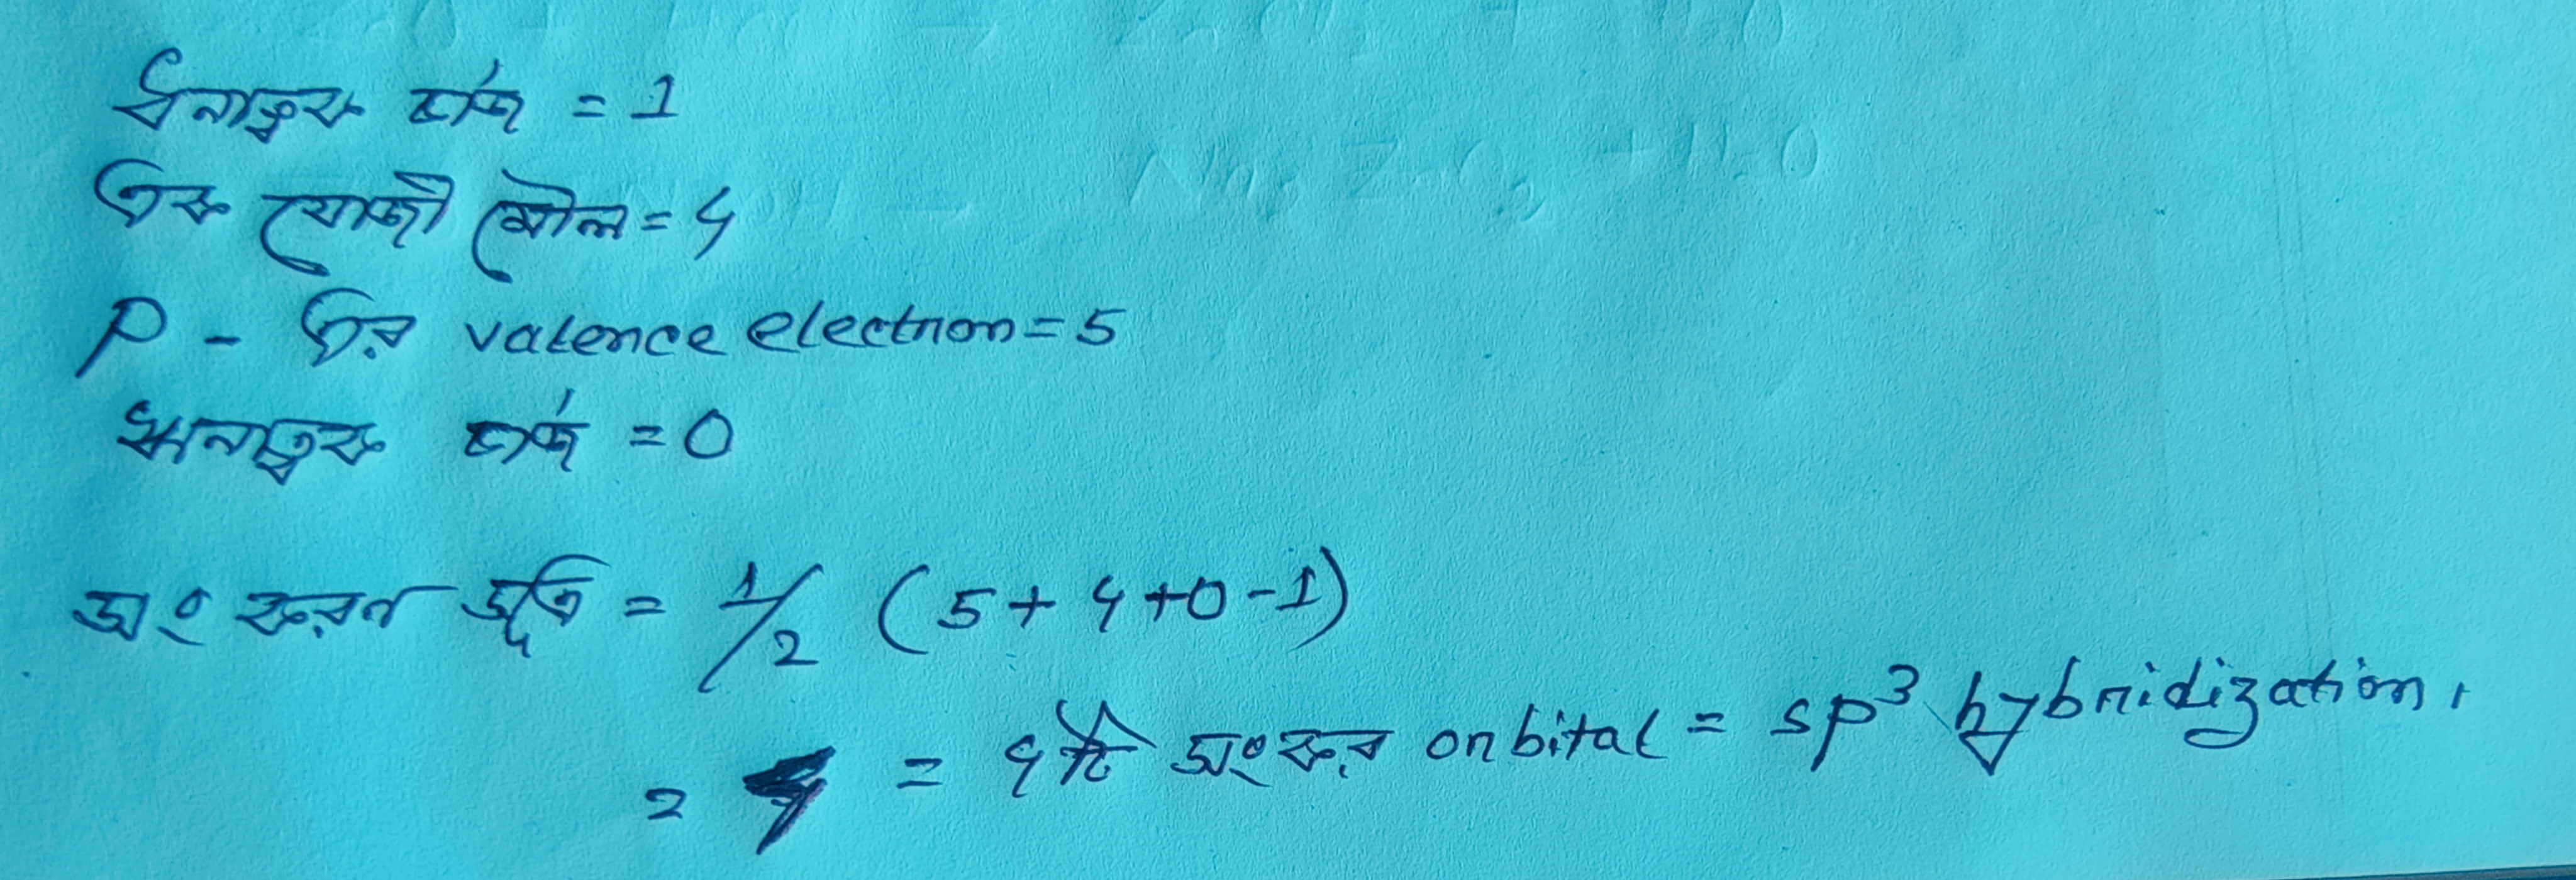 ধনাত্বক চার্জ = 1
এক যোজী মৌল = 4
P - এর valence electron = 5
ঋনাত্বক চার্জ = 0
সংকরন জুতি = 1/2 (5 + 4 + 0 - 1)
= 4 = 4টি সংকর orbital = sp³ hybridization,